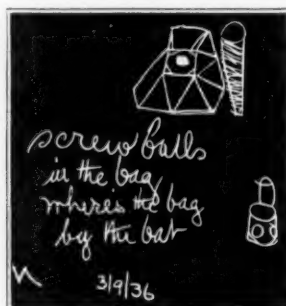 screw balls
in the bag
wheres the bag
by the bat
3/9/36